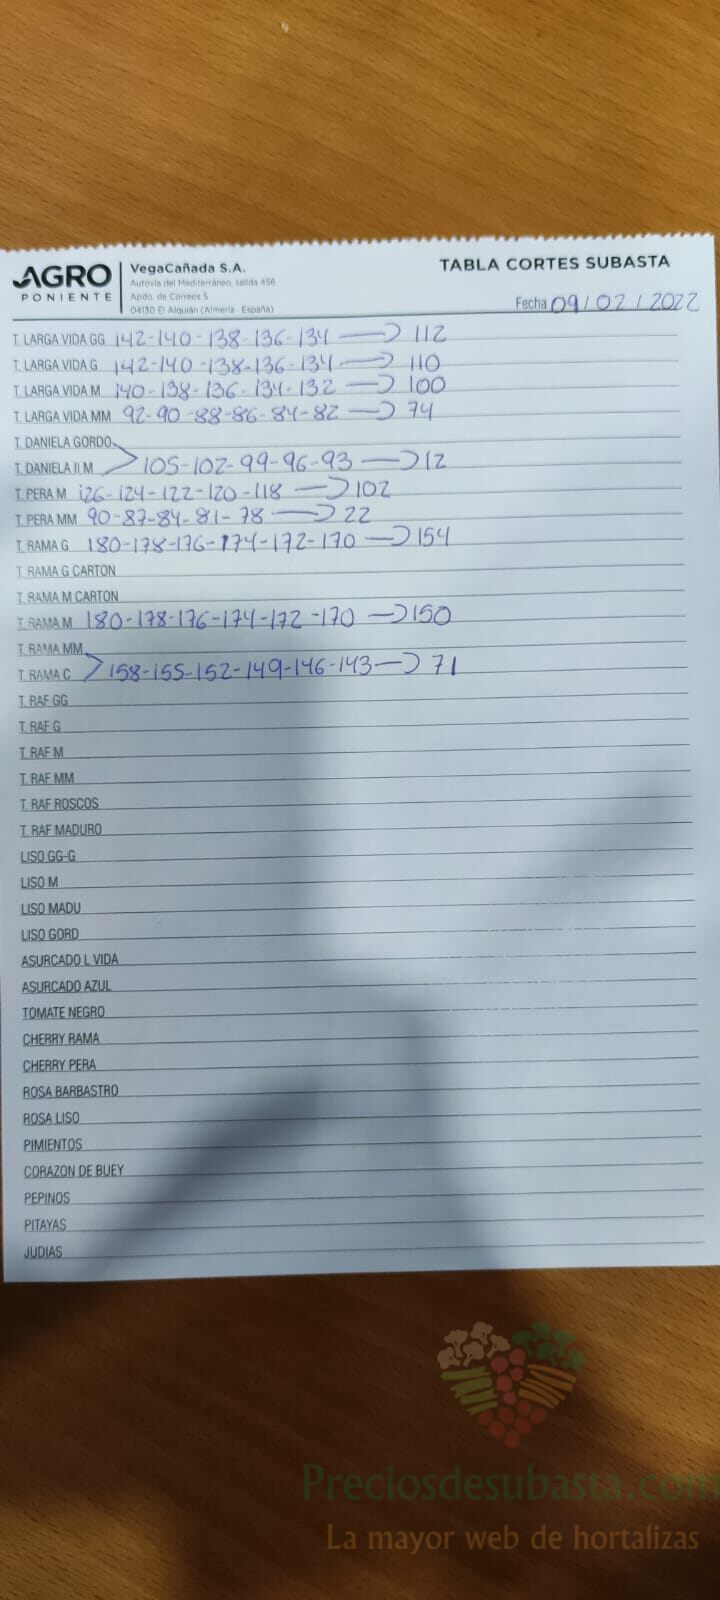 AGRO
PONIENTE
VegaCañada S.A.
Autovía del Mediterráneo, salida 456
Apdo. de Correos 5
04130 El Alquián (Almería - España)
TABLA CORTES SUBASTA
Fecha 09/02/2022
T. LARGA VIDA GG 142-140-138-136-134 → 112
T. LARGA VIDA G 142-140-138-136-134 → 110
T. LARGA VIDA M 140-138-136-134-132 → 100
T. LARGA VIDA MM 92-90-88-86-84-82 → 74
T. DANIELA GORDO
T. DANIELA II M 105-102-99-96-93 → 12
T. PERA M 126-124-122-120-118 → 102
T. PERA MM 90-87-84-81-78 → 22
T. RAMA G 180-178-176-174-172-170 → 154
T. RAMA G CARTON
T. RAMA M CARTON
T. RAMA M 180-178-176-174-172-170 → 150
T. RAMA MM
T. RAMA C 158-155-152-149-146-143 → 71
T. RAF GG
T. RAF G
T. RAF M
T. RAF MM
T. RAF ROSCOS
T. RAF MADURO
LISO GG-G
LISO M
LISO MADU
LISO GORD
ASURCADO L VIDA
ASURCADO AZUL
TOMATE NEGRO
CHERRY RAMA
CHERRY PERA
ROSA BARBASTRO
ROSA LISO
PIMIENTOS
CORAZON DE BUEY
PEPINOS
PITAYAS
JUDIAS
Preciosdesubasta.com
La mayor web de hortalizas